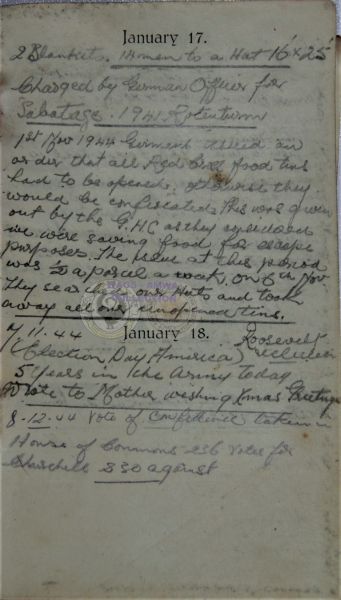 January 17.
2 Blankets. 14 men to a Hut 16' x 25'
Charged by German Officer for
Sabotage. 1941. Rotenturm
1st Nov 1944 Germans issued an
order that all Red Cross food tins
had to be opened, otherwise they
would be confiscated. This was given
out by the G.H.C as they considered
we were saving food for escape
purposes. The issue at this period
was ½ a parcel a week, on 6th Nov
They searched our Huts and took
away all our unopened tins.
January 18.
7.11.44 Roosevelt
(Election Day America)
5 years in the Army today
Wrote to Mother wishing Xmas Greetings
8-12-44 Vote of Confidence taken in
House of Commons 256 Votes for
Churchill 330 against